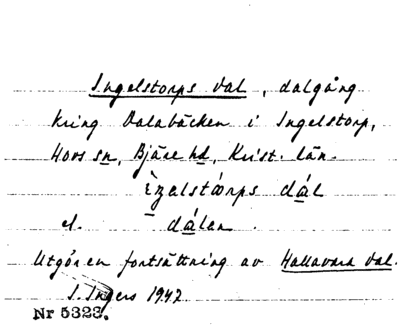 Ingelstorps dal, dalgång
kring Dalabäcken i Ingelstorp,
Hovs sn, Bjäre hd, Krist. län.
dál
el. dálen.
Utgör en fortsättning av Hallavara dal.
I. Ingers 1942
Nr 5323.